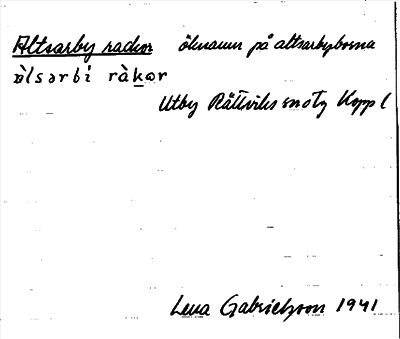 Altsarby rackor öknamn på altsarbyborna
àlsərbi ràkər
Utby Rättviks snöty Kopp l
Lena Gabrielsson 1941